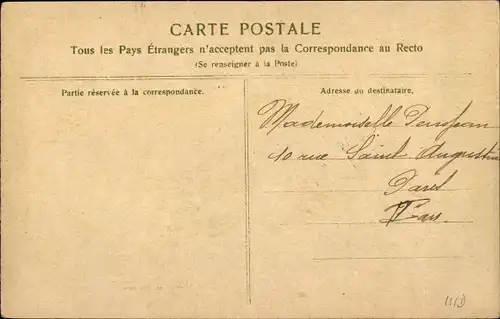 CARTE POSTALE
Tous les Pays Étrangers n'acceptent pas la Correspondance au Recto
(Se renseigner à la Poste)
Partie réservée à la correspondance.
Adresse du destinataire.
Mademoiselle
10 rue Saint Augustin
Paris